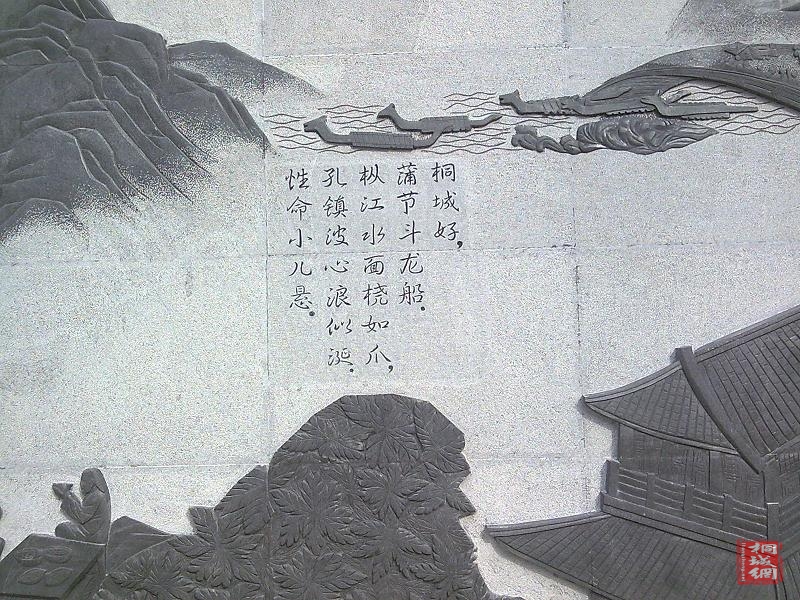 桐城好，
蒲节斗龙船。
枞江水面桡如爪，
孔镇波心浪似涎。
性命小儿悬。
桐城網